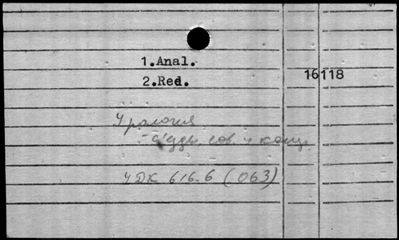 1.Anal.
2.Red. 16118
Урология
- съезды, сов. и конф.
УДК 616.6 (063)